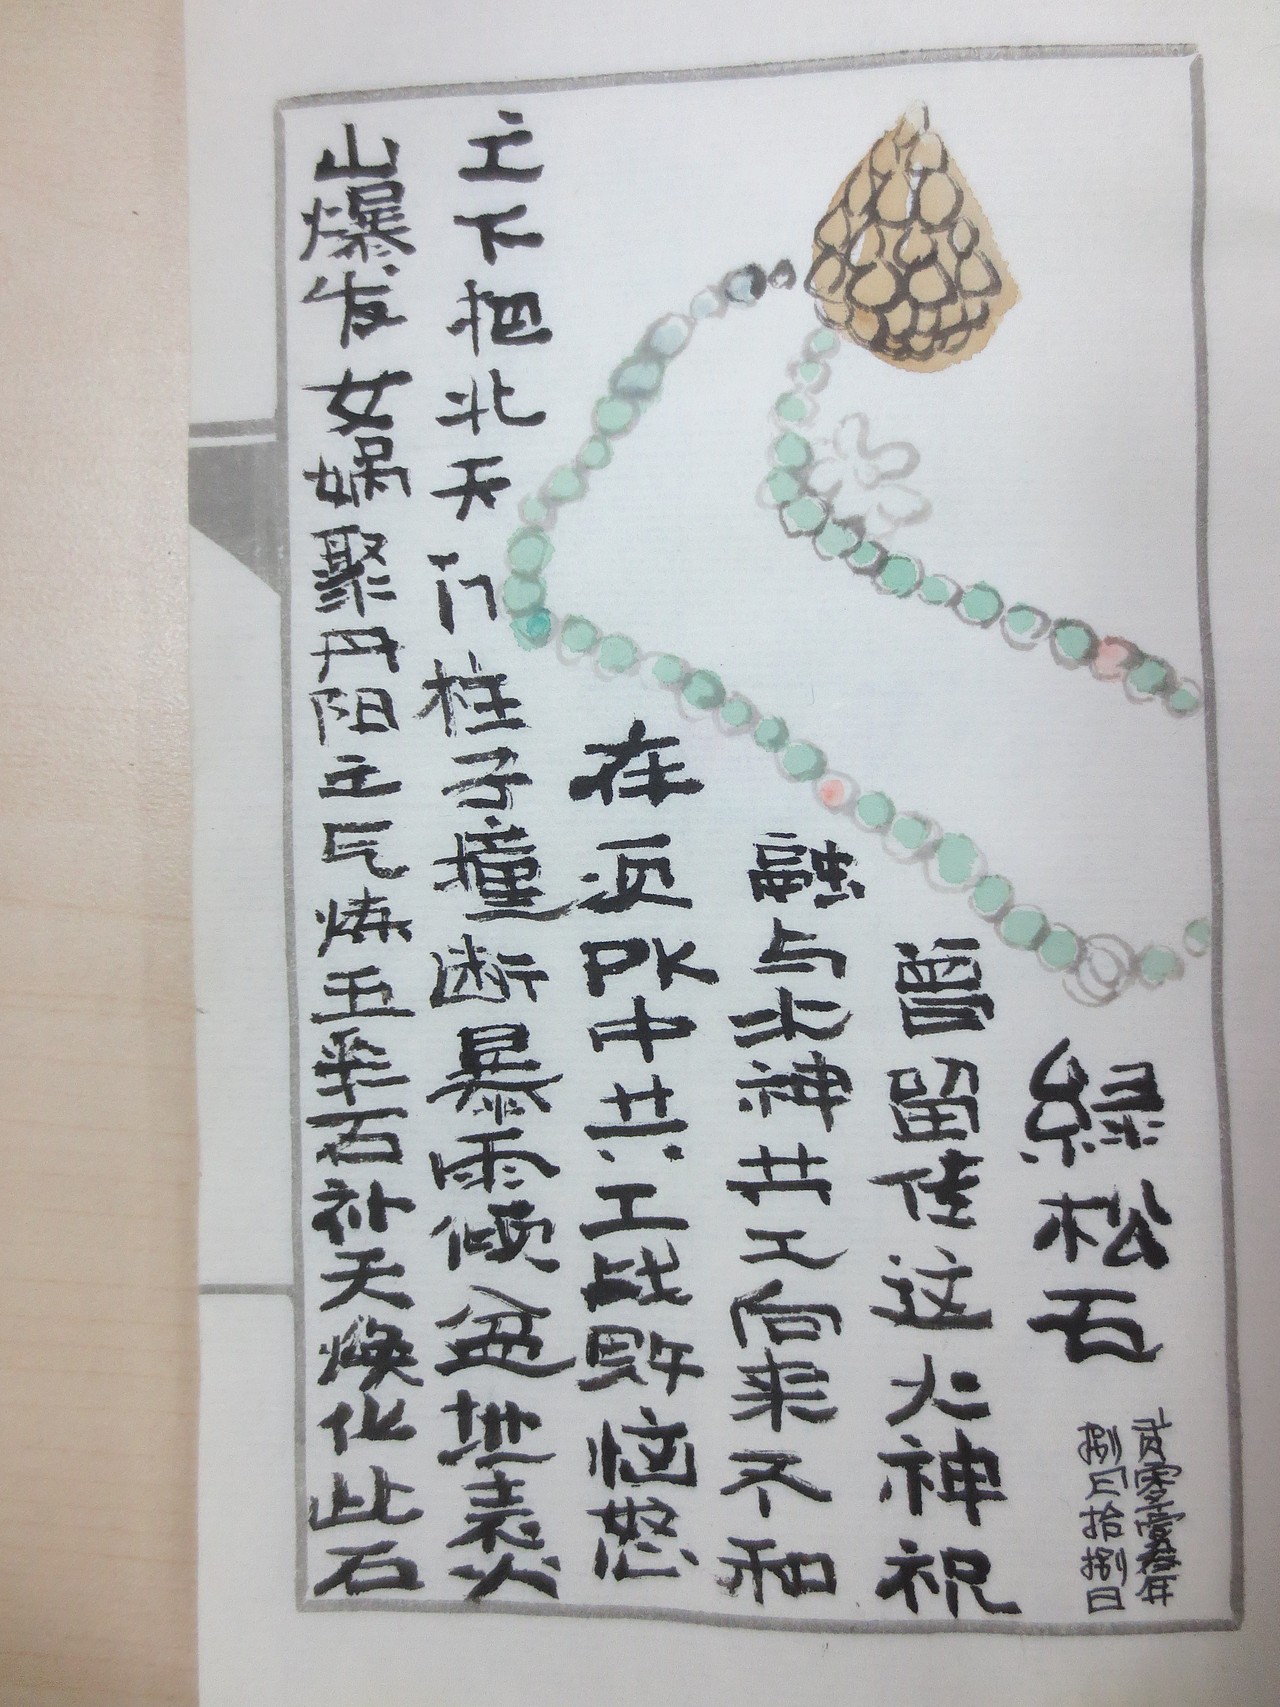 綠松石
贰零壹叁年
捌月拾捌日
曾留传这火神祝
融与水神共工向来不和
在一次PK中共工战败恼怒
之下把北天门柱子撞断暴雨倾盆地表火
山爆发女娲聚丹阳之气炼五采石补天焕化此石